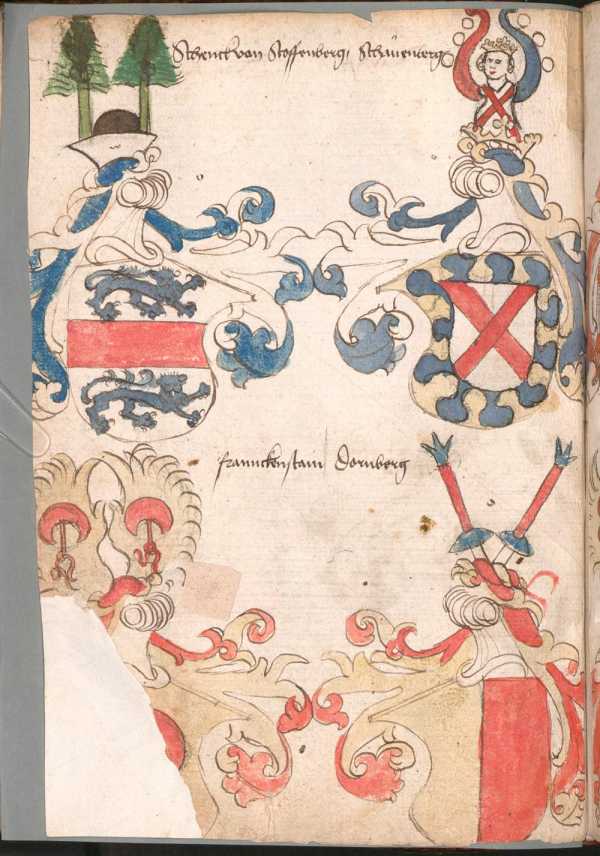 Schenck van Stoffenberg, Schauenberg
franckenstain Dornberg